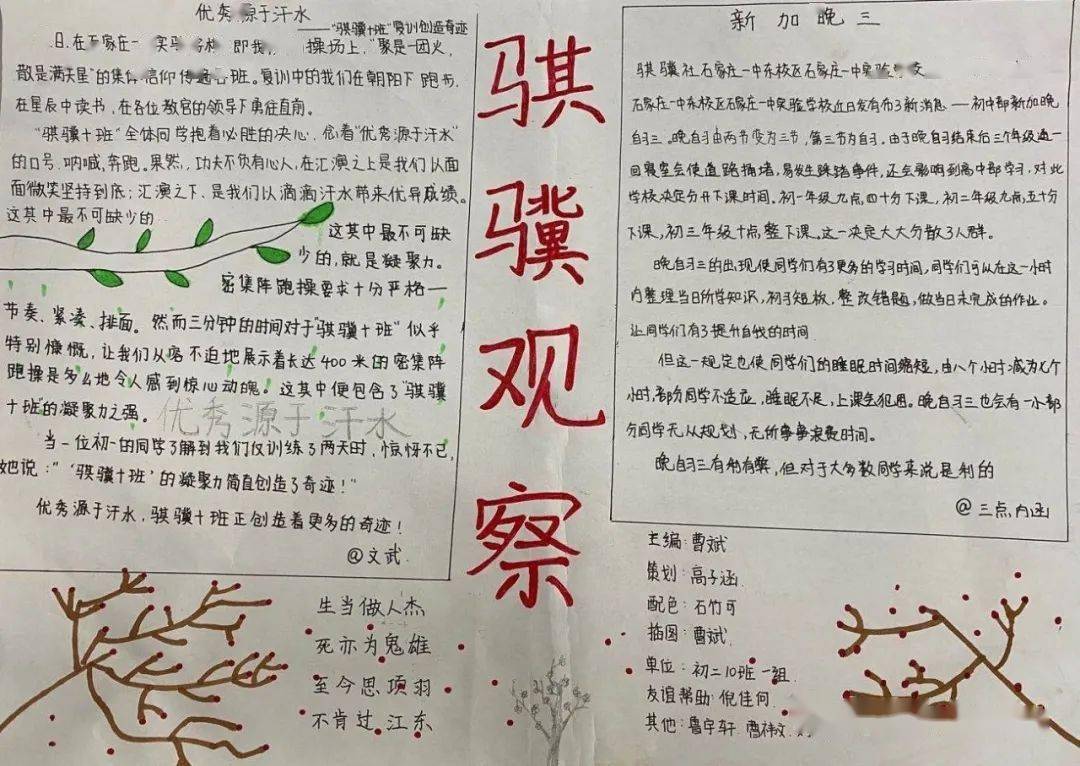 优秀源于汗水
——"骐骥十班"夏训创造奇迹
日,在石家庄一 实验 即我, 操场上,"聚是一团火,
散是满天星"的集体信仰传遍各班。夏训中的我们在朝阳下跑步,
在星辰中读书,在各位教官的领导下勇往直前。
"骐骥十班"全体同学抱着必胜的决心,念着"优秀源于汗水"
的口号,呐喊,奔跑。果然,功夫不负有心人,在汇演之上是我们以面
面微笑坚持到底;汇演之下,是我们以滴滴汗水带来优异成绩。
这其中最不可缺少的
这其中最不可缺
少的,就是凝聚力。
密集阵跑操要求十分严格—
节奏、紧凑、排面。然而三分钟的时间对于"骐骥十班"似乎
特别慷慨,让我们从容不迫地展示着长达400米的密集阵
跑操是多么地令人感到惊心动魄。这其中便包含了"骐骥
十班"的凝聚力之强。
优秀源于汗水
当一位初一的同学了解到我们仅训练了两天时,惊怀不已,
她说:"'骐骥十班'的凝聚力简直创造了奇迹!"
优秀源于汗水,骐骥十班正创造着更多的奇迹!
@文武
生当做人杰
死亦为鬼雄
至今思项羽
不肯过江东
骐
骥
观
察
新加晚三
骐骥社石家庄一中东校区石家庄一中实验
石家庄一中东校区石家庄一中实验学校近日发布了新消息——初中部新加晚
自习三。晚自习由两节变为三节,第三节为自习,由于晚自习结束后三个年级通一
回寝室会使道路拥堵,易发生踩踏事件,还会影响到高中部学习,对此
学校决定分开下课时间,初一年级九点四十分下课,初二年级九点五十分
下课,初三年级十点整下课。这一决定大大分散了人群。
晚自习三的出现使同学们有了更多的学习时间,同学们可从在这一小时
内整理当日所学知识,初习短板,整改错题,做当日未完成的作业。
让同学们有了提升自我的时间
但这一规定也使同学们的睡眠时间缩短,由八个小时减为七个
小时,部分同学不适应,睡眠不足,上课会犯困。晚自习三也会有一小部
分同学无从规划,无所事事浪费时间。
晚自习三有利有弊,但对于大多数同学来说是利的
@三点内涵
主编:曹斌
策划:高子涵
配色:石竹可
插图:曹斌
单位:初二10班一组
友谊帮助:倪佳何
其他:鲁宇轩 曹祎文